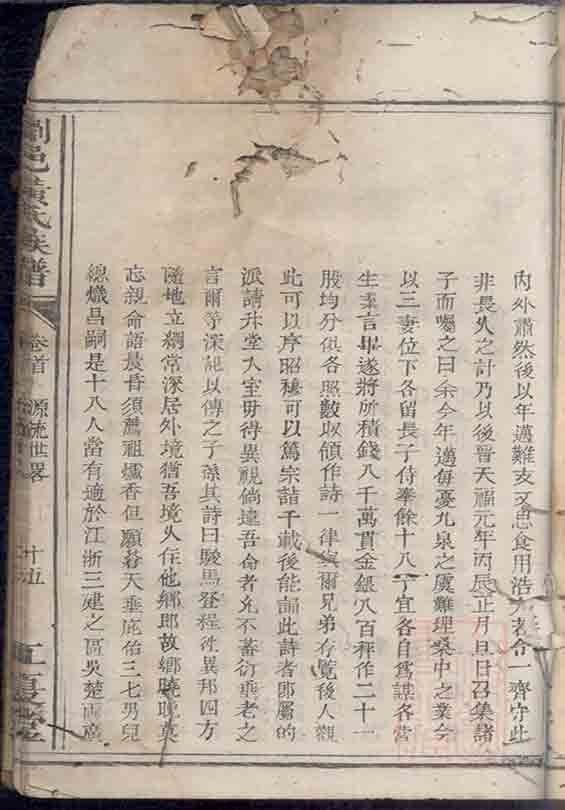 內外肅然後以年邁難支又思食用浩大若合一齊守此
非長久之計乃以後晉天福元年丙辰正月旦日召集諸
子而囑之曰余今年邁每憂九泉之虞難理桑中之業今
以三妻位下各留長子侍奉餘十八丁宜各自為謀各營
生業言畢遂將所積錢八千萬貫金銀八百秤作二十一
股均分俱各照數收領作詩一律與爾兄弟存覽後人觀
此可以序昭穆可以篤宗誼千載後能誦此詩者即屬的
派請升堂入室毋得異視倘違吾命者允不蕃衍垂老之
言爾等深記以傳之子孫其詩曰駿馬登程往異邦四方
隨地立綱常深居外境猶吾境久住他鄉即故鄉曉晚莫
忘親命語晨昏須薦祖爐香但願蒼天垂庇佑三七男兒
總熾昌嗣是十八人當有適於江浙三建之區吳楚兩廣
邑黃氏族譜
卷首
源流世畧
廿五
江夏堂